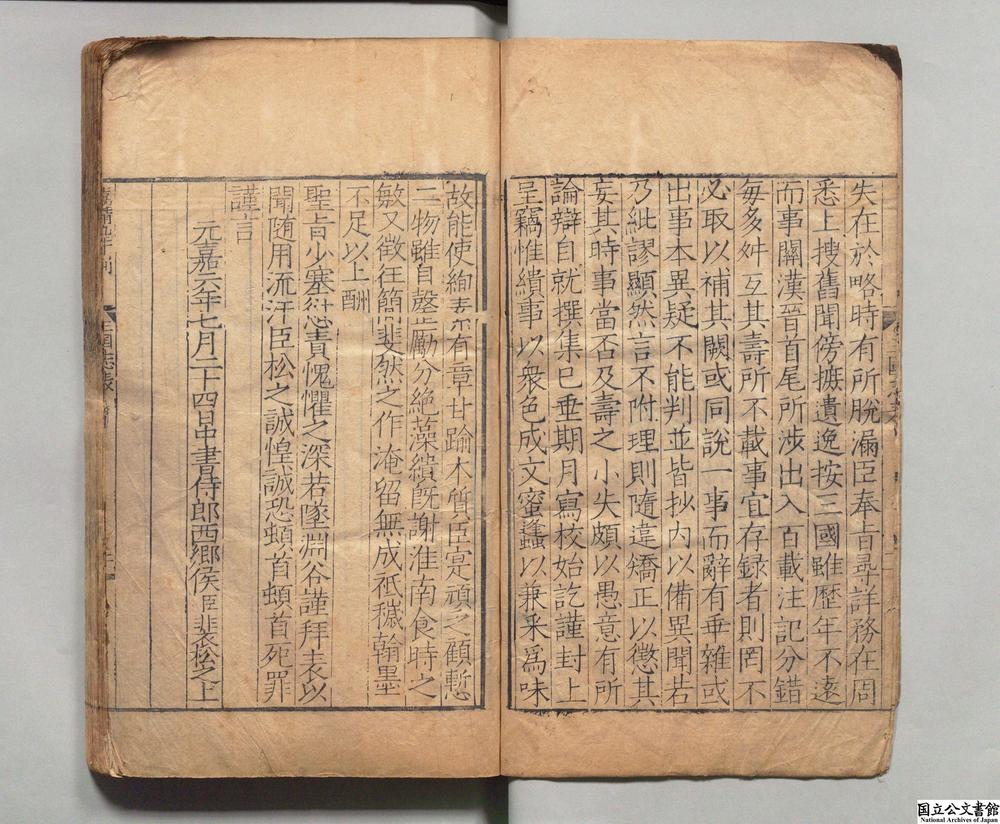 失在於略時有所脫漏臣奉旨尋詳務在周
悉上搜舊聞傍摭遺逸按三國雖歷年不遠
而事關漢晉首尾所涉出入百載注記分錯
每多舛互其壽所不載事宜存錄者則罔不
必取以補其闕或同說一事而辭有乖雜或
出事本異疑不能判並皆抄內以備異聞若
乃紕謬顯然言不附理則隨違矯正以懲其
妄其時事當否及壽之小失頗以愚意有所
論辯自就撰集巳垂期月寫校始訖謹封上
呈竊惟繢事以衆色成文蜜蠭以兼采爲味
故能使絢素有章甘踰木質臣寔頑之顧慙
二物雖自罄勵分絕藻繢旣謝淮南食時之
敏又微狂簡斐然之作淹留無成祗穢翰墨
不足以上酬
聖旨少塞愆責愧懼之深若墜淵谷謹拜表以
聞隨用流汗臣松之誠惶誠恐頓首頓首死罪
謹言
元嘉六年七月二十四日中書侍郎西鄉侯臣裴松之上
三國志表
国立公文書館
National Archives of Japan